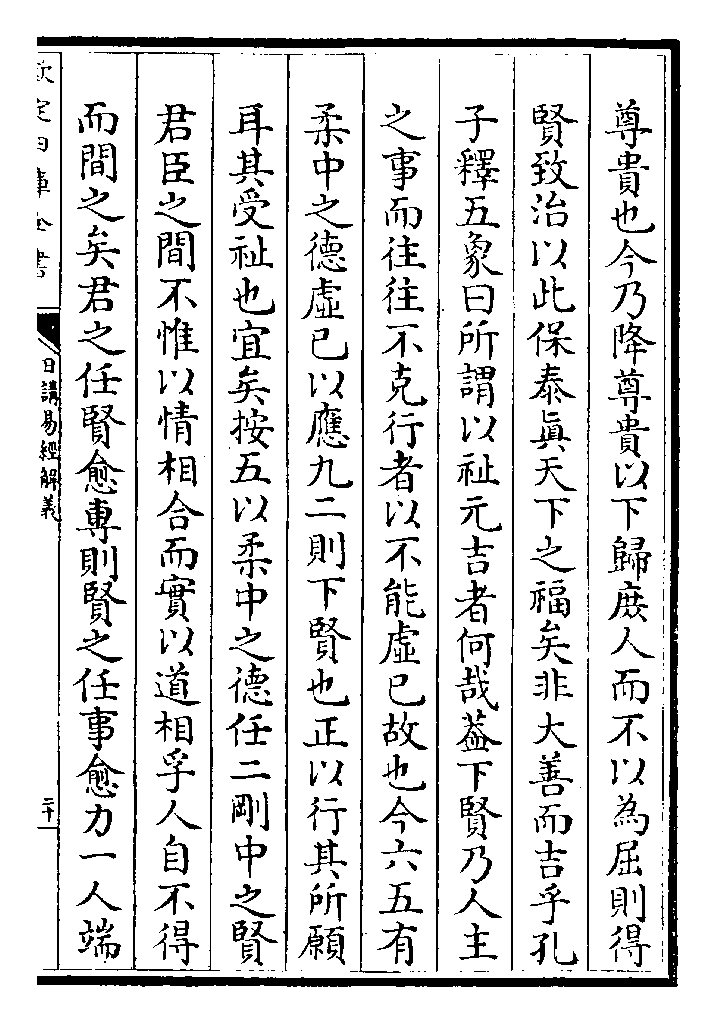 尊貴也今乃降尊貴以下歸庻人而不以為屈則得
賢致治以此保泰眞天下之福矣非大善而吉乎孔
子釋五象曰所謂以祉元吉者何哉葢下賢乃人主
之事而往往不克行者以不能虛已故也今六五有
柔中之德虛已以應九二則下賢也正以行其所願
耳其受祉也宜矣按五以柔中之德任二剛中之賢
君臣之間不惟以情相合而實以道相孚人自不得
而間之矣君之任賢愈專則賢之任事愈力一人端
欽定四庫全書
日講易經解義
二十